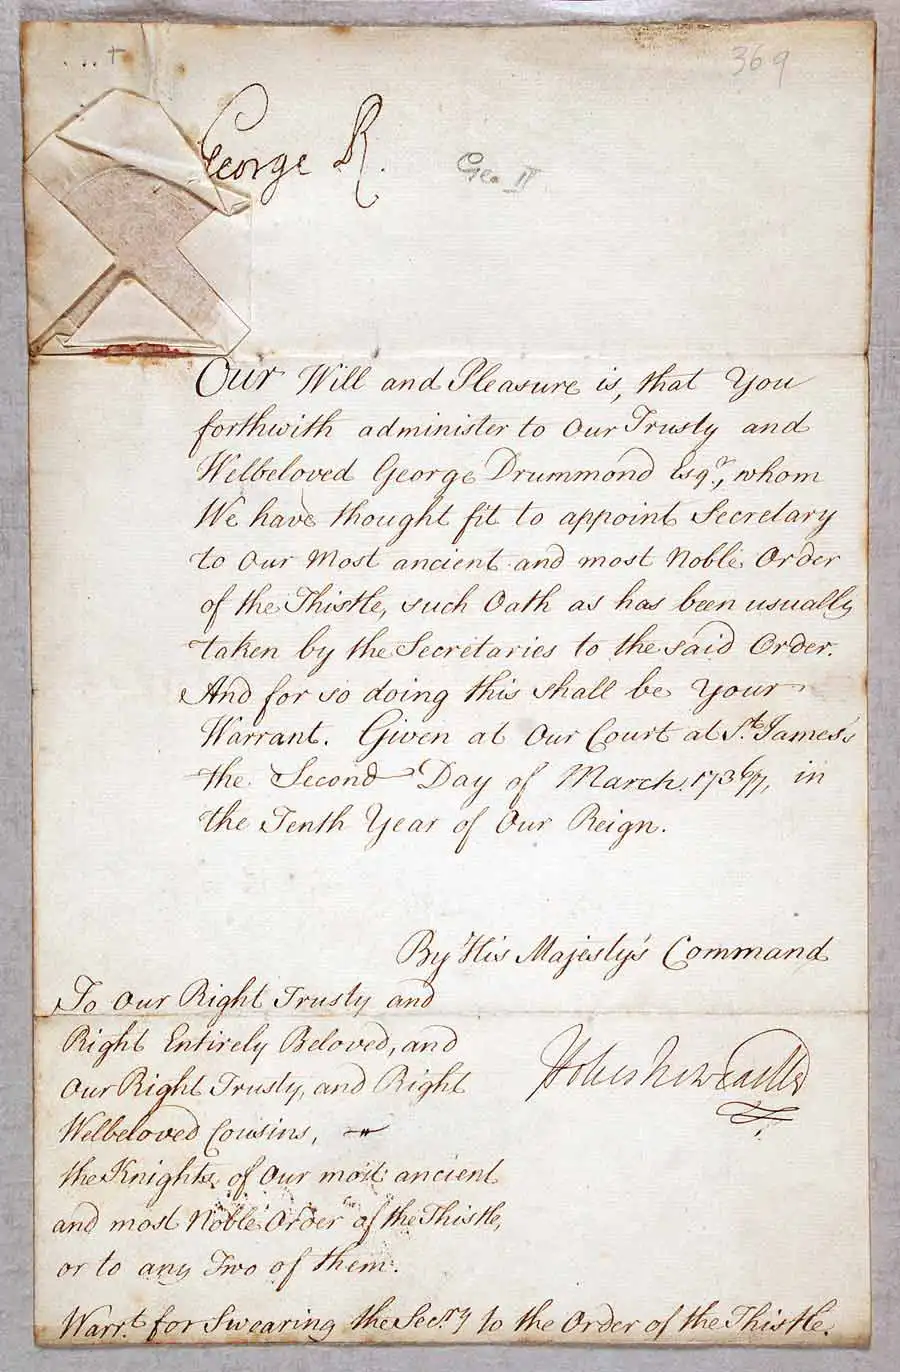 369
George R.
Geo II
Our Will and Pleasure is, that You
forthwith administer to Our Trusty and
Welbeloved George Drummond Esqr., whom
We have thought fit to appoint Secretary
to Our Most ancient and most Noble Order
of the Thistle, such Oath as has been usually
taken by the Secretaries to the said Order.
And for so doing this shall be Your
Warrant. Given at Our Court at St. James's
the Second Day of March, 1736/7, in
the Tenth Year of Our Reign.
By His Majesty's Command
To Our Right Trusty and
Right Entirely Beloved, and
Our Right Trusty, and Right
Welbeloved Cousins,
the Knights of Our most ancient
and most Noble Order of the Thistle,
or to any Two of them.
Holles Newcastle
Warrt. for Swearing the Secry to the Order of the Thistle.